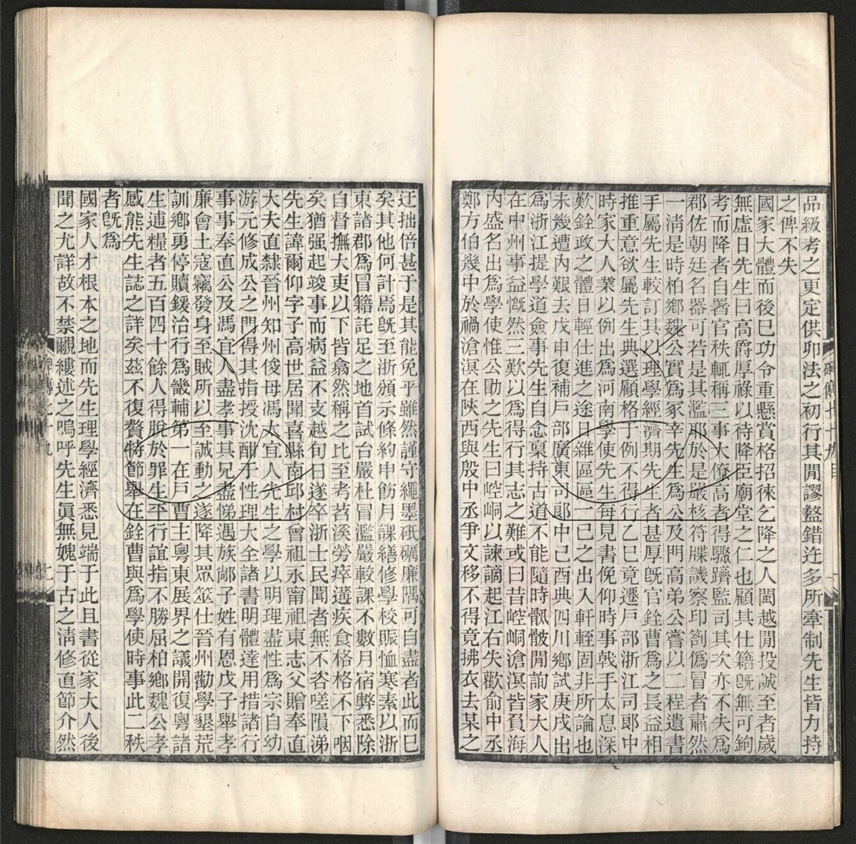 品級考之更定供卯法之初行其閒謬盭錯迕多所牽制先生皆力持
之俾不失
國家大體而後巳功令重懸賞格招徠乞降之人閩越閒投誠至者歲
無虛日先生曰高爵厚祿以待降臣廟堂之仁也顧其仕籍旣無可鉤
考而降者自署官秩輒稱三事大僚高者得驟躋監司其次亦不失爲
郡佐朝廷名器可若是其濫耶於是嚴核符牒譏察印劄僞冒者肅然
一淸是時柏鄕魏公實爲冢宰先生爲公及門高弟公嘗以二程遺書
手屬先生較訂其以理學經濟期先生者甚厚旣官銓曹爲之長益相
推重意欲屬先生典選顧格于例不得行乙巳竟遷戸部浙江司郎中
時家大人業以例出爲河南學使先生每見書俛仰時事戟手太息深
歎銓政之體日輕仕進之途日雜區區一己之出入軒輊固非所論也
未幾遭內艱去戊申復補戸部廣東司郎中己酉典四川鄕試庚戌出
爲浙江提學道僉事先生自念稟持古道不能隨時骩骳閒訚家大人
在中州事益慨然三歎以爲得行其志之難或曰昔崆峒滄溟皆負海
內盛名出爲學使惟公勖之先生曰崆峒以諫謫起江右失歡俞中丞
鄭方伯幾中於禍滄溟在陝西與殷中丞爭文移不得竟拂衣去某之
迂拙倍甚于是其能免乎雖然謹守繩墨祇礪廉隅可自盡者此而巳
矣其他何計焉旣至浙頒示條約申飭月課繕修學校賑恤寒素以浙
東諸郡爲冒籍託足之地首試台嚴杜冒濫嚴較課不數月宿弊悉除
自督撫大吏以下皆翕然稱之比至考苕溪勞瘁遘疾食格格不下咽
矣猶强起竣事而病益不支越旬日遂卒浙士民聞者無不咨嗟隕涕
先生諱爾仰字子高世居聞喜縣南邱村曾祖永甯祖東志父贈奉直
大夫直隸晉州知州俊母馮太宜人先生之學以明理盡性爲宗自幼
游元修成公之門得其指授沈酣于性理大全諸書明體達用措諸行
事事奉直公及馮宜人盡孝事其兄盡悌遇族鄰子姓有恩戊子舉孝
廉會土寇竊發身至賊所以至誠動之遂降其眾筮仕晉州勸學墾荒
訓鄕勇停贖鍰治行爲畿輔第一在戸曹主粵東展界之議開復粵諸
生逋糧者五百四十餘人得脫於罪生平行誼指不勝屈柏鄕魏公孝
感熊先生誌之詳矣茲不復贅特節舉在銓曹與爲學使時事此二秩
者旣爲
國家人才根本之地而先生理學經濟悉見端于此且書從家大人後
聞之尤詳故不禁覼縷述之嗚呼先生眞無媿于古之淸修直節介然